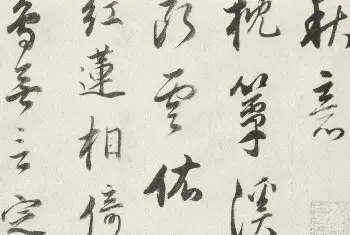 秋意
枕簟溪
断雲依
紅蓮相倚
鳥無言定